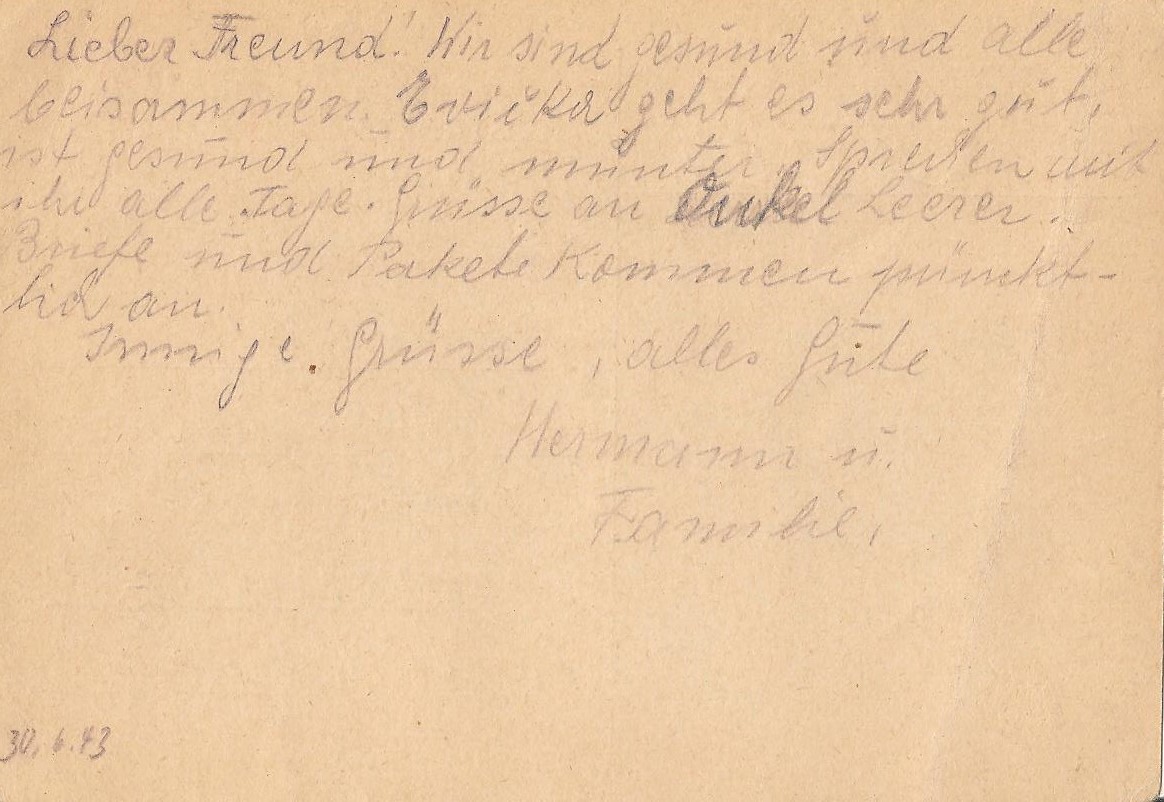 Lieber Freund! Wir sind gesund und alle
beisammen. Evička geht es sehr gut,
ist gesund und munter. Sprechen mit
ihr alle Tage. Grüsse an Onkel Leerer.
Briefe und Pakete kommen pünkt-
lich an.
Innige Grüsse, alles Gute
Hermann u.
Familie.
30.6.43